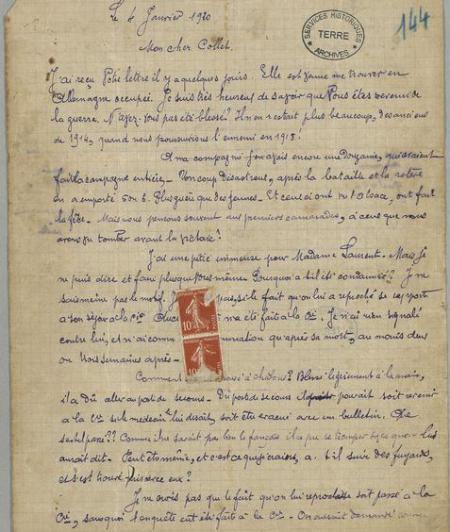 Le 4 Janvier 1920
144
SERVICES HISTORIQUES
TERRE
ARCHIVES
Mon cher Collet.
J'ai reçu votre lettre il y a quelques jours. Elle est venue me trouver en
Allemagne occupée. Je suis très heureux de savoir que vous êtes revenu de
la guerre. N'avez-vous pas été blessé? Il n'en restait plus beaucoup, des anciens
de 1914, quand nous poursuivions l'ennemi en 1918!
A ma compagnie j'en avais encore une douzaine, qui avaient
fait la campagne entière. Un coup désastreux, après la bataille et la
en a emporté 5 ou 6. Plus que des jeunes. Et ceux-ci ont vu l'Alsace, ont fait
la fête. Mais nous pensons souvent aux premiers camarades, à ceux que nous
avons vu tomber avant la victoire!
J'ai une pitié immense pour Madame Laurent. Mais je
ne puis dire et faire plus que vous même. Pourquoi a-t-il été condamné? Je ne
sais même pas le motif. pas, si le fait qu'on lui a reproché se rapporte
à son séjour à la Cie. ma été fait à la Cie. Je n'ai rien signalé
contre lui, et n'ai connu qu'après sa mort, au moins deux
ou trois semaines après.
Comment? Blessé légèrement à la main,
il a dû aller au poste de secours. Du poste de secours il pouvait soit revenir
à la Cie si le médecin lui disait, soit être évacué avec un bulletin. Que
s'est-il passé?? Comme il ne savait pas bien le français il a pu se tromper sur ce qu'on lui
aurait dit. Peut-être même, et c'est ce que je crains, a-t-il suivi des fuyards,
et s'est trouvé pris avec eux?
Je ne crois pas que le fait qu'on lui reproche se soit passé à la
Cie, sans quoi l'enquête eut été faite à la Cie. On aurait demandé
10
10